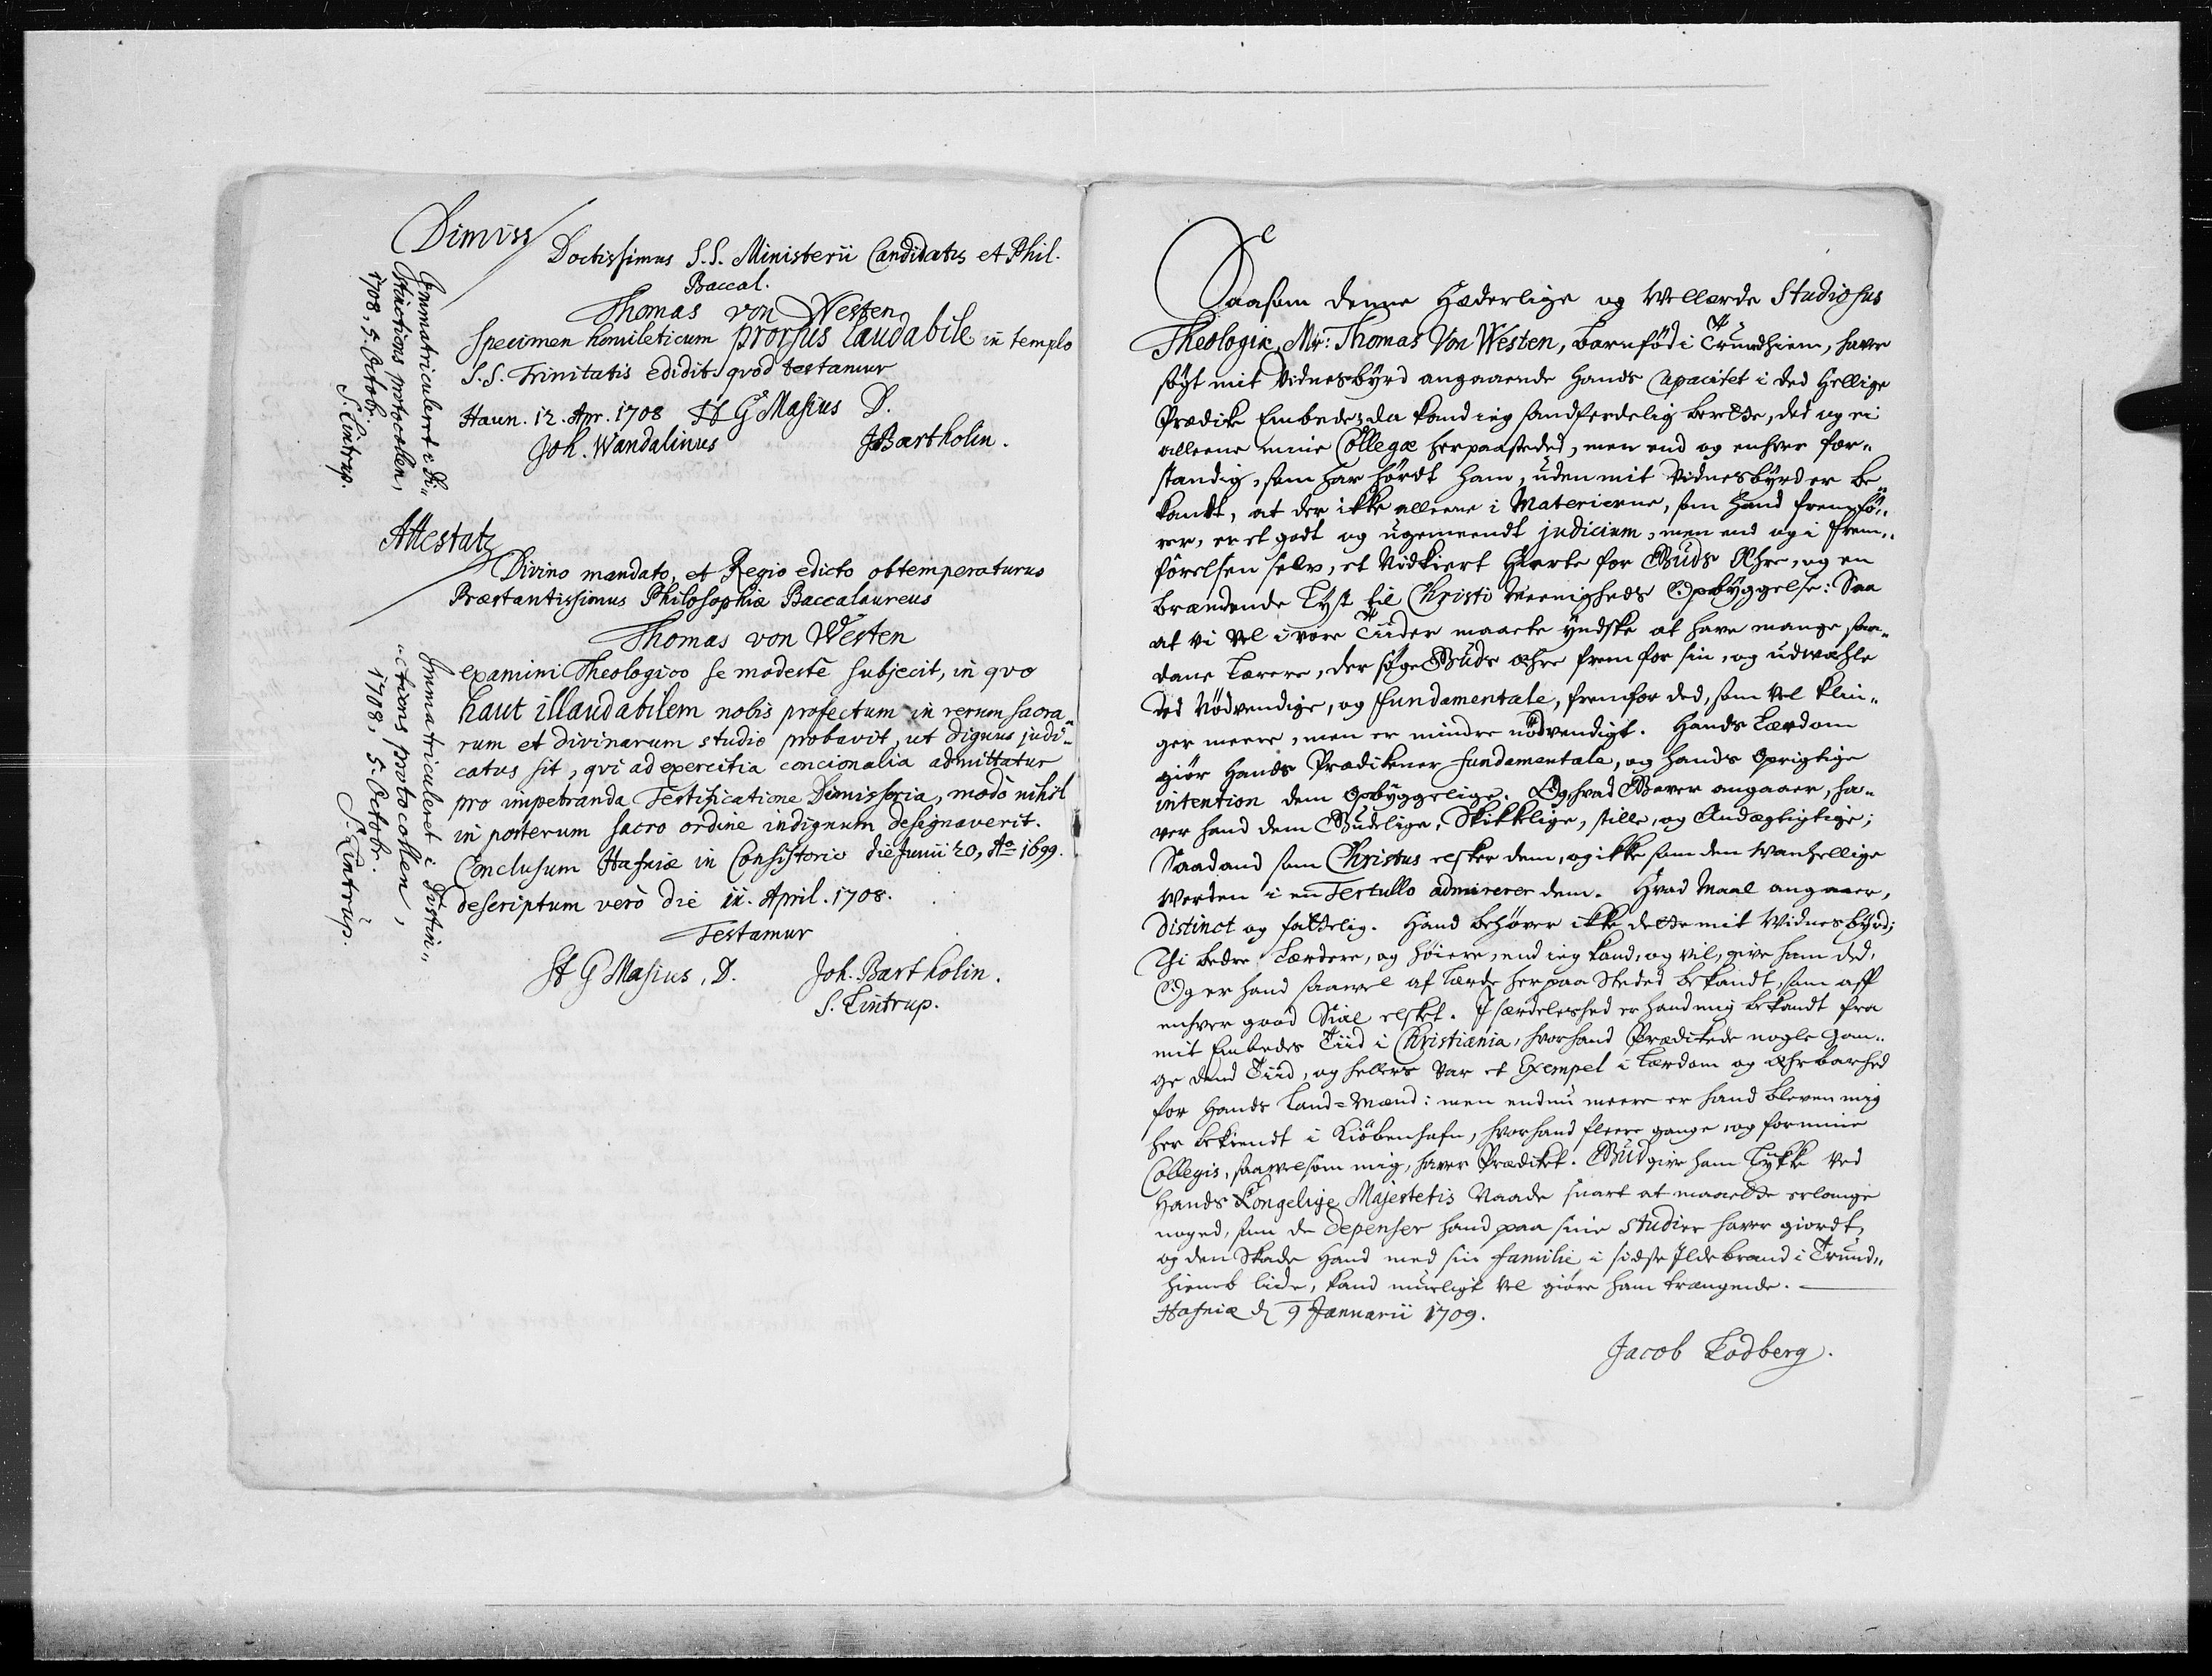 Dimiss
Doctissimus S.S. Ministerii Candidatus et Phil.
Baccal.
Thomas von Westen
Specimen homileticum prorsus laudabile in templo
S.S. Trinitatis edidit, qvod testamur
Haun. 12. Apr. 1708 H G Masius D.
Joh. Wandalinus JBartholin.
Immatriculeret i Di„
stinctions protocollen,
1708. 5. Octobr.
S. Lintrup.
Attestatz
Divino mandato, et Regio edicto obtemperaturus
Præstantissimus Philosophiæ Baccalaureus
Thomas von Westen
examini Theologico se modestè subjecit, in qvo
haut illaudabilem nobis profectum in rerum sacra„
rum et divinarum studio probavit, ut dignus judi„
catus sit, qvi ad exercitia concionalia admittatur
pro impetranda Testificatione Dimissoria, modò nihil
in posterum sacro ordine indignum designaverit.
Conclusum Hafniæ in Consistorio die Junii 20, Ao 1699.
descriptum verò die 11. April. 1708.
Testamur
H G Masius, D. Joh. Bartholin.
S. Lintrup.
Immatriculeret i Distin„
ctions protocollen,
1708, 5. Octobr.
S. Lintrup.
Saasom denne Hæderlige og Wellærde Studiosus
Theologiæ, Mr: Thomas Von Westen, barnfød i Trundhiem, haver
søgt mit Vidnesbyrd angaaende hands Capacitet i ded Hellige
Prædike Embede; da kand ieg sandferdelig berette, ded og ei
alleene mine Collegæ her paa steded, men end og enhver for„
standig, som har hørdt ham, uden mit Vidnesbyrd er be„
kandt, at der ikke alleene i Materierne, som hand fremfø„
rer, er et godt og ugemeendt judicium, men end og i frem„
førelsen selv, et Nidkiert Hierte for Guds Ære, og en
brændende Lyst til Christi Meenigheds Opbyggelse: Saa
at vi vel i vore Tiider maatte yndske at have mange saa„
dane Lærere, der søge Guds ære frem for sin, og udvæhle
ded Nødvendige, og fundamentale, fremfor ded, som vel klin„
ger meere, men er mindre nødvendigt. Hands Lærdom
giør hands Prædikener fundamentale, og hands oprigtige
intention dem opbyggelige. Og hvad Gaver angaaer, ha„
ver hand dem Gudelige, Skikkelige, stille, og Andægtigtige;
Saadand som Christus elsker dem, og ikke som den Wanhellige
Werden i en Tertullo admirerer dem. Hvad Maal angaaer,
distinct og fattelig. Hand behøver ikke dette mit Widnesbyrd;
Thi bedre Lærdere, og høiere, end ieg kand, og vil, give ham ded.
Og er hand saavel af Lærde her paa Steded bekandt, som aff
enhver good Siæl elsket. I særdeleshed er hand mig bekandt fra
mit Embedes Tiid i Christiania, hvor hand Prædikede nogle Gan„
ge dend Tiid, og hellers var et Exempel i Lærdom og Ærbarhed
for hands Land=Mænd: men endnu meere er hand bleven mig
her bekiendt i Kiöbenhafn, hvor hand fleere gange, og for mine
Collegis, saavelsom mig, haver Prædiket. Gud give ham Lykke ved
Hands Kongelige Majestetis Naade snart at maatte erlange
noged, som de depenser hand paa sine studier haver giordt,
og den Skade hand med sin familie i sidste Ildebrand i Trund„
hiemb lide, kand mueligt vel giøre ham trængende.
Hafniæ d 9 Januarii 1709.
Jacob Lodberg.